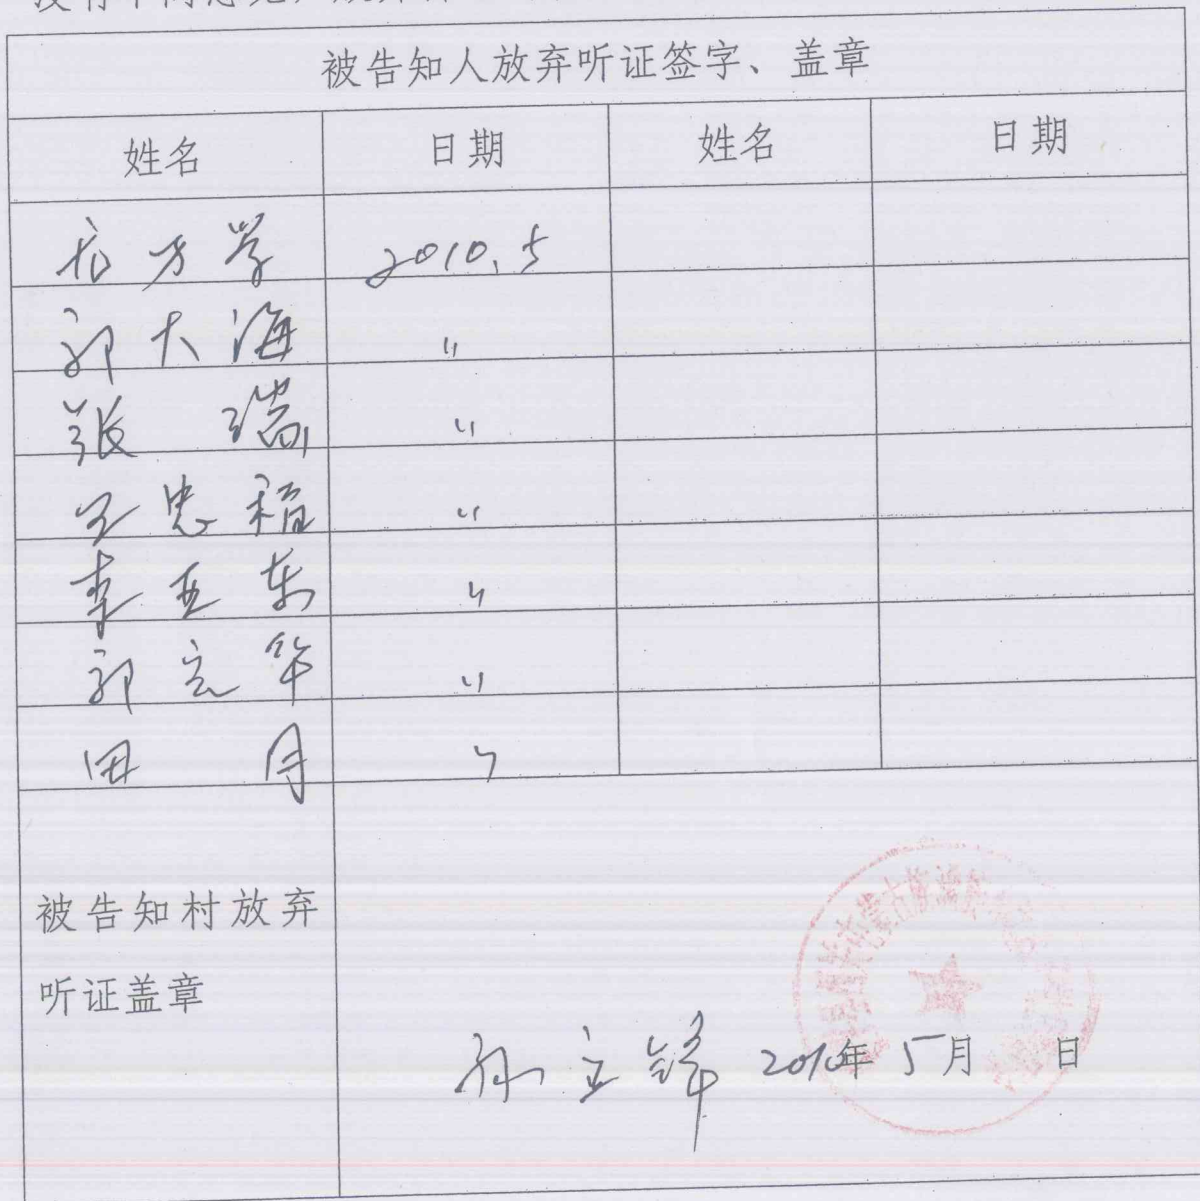 被告知人放弃听证签字、盖章
姓名 日期 姓名 日期
2010.5
郭大海 〃
张瑞 〃
王忠福 〃
李亚东 〃
郭立华 〃
田月 〃
被告知村放弃
听证盖章
孙立锋 2010年5月 日